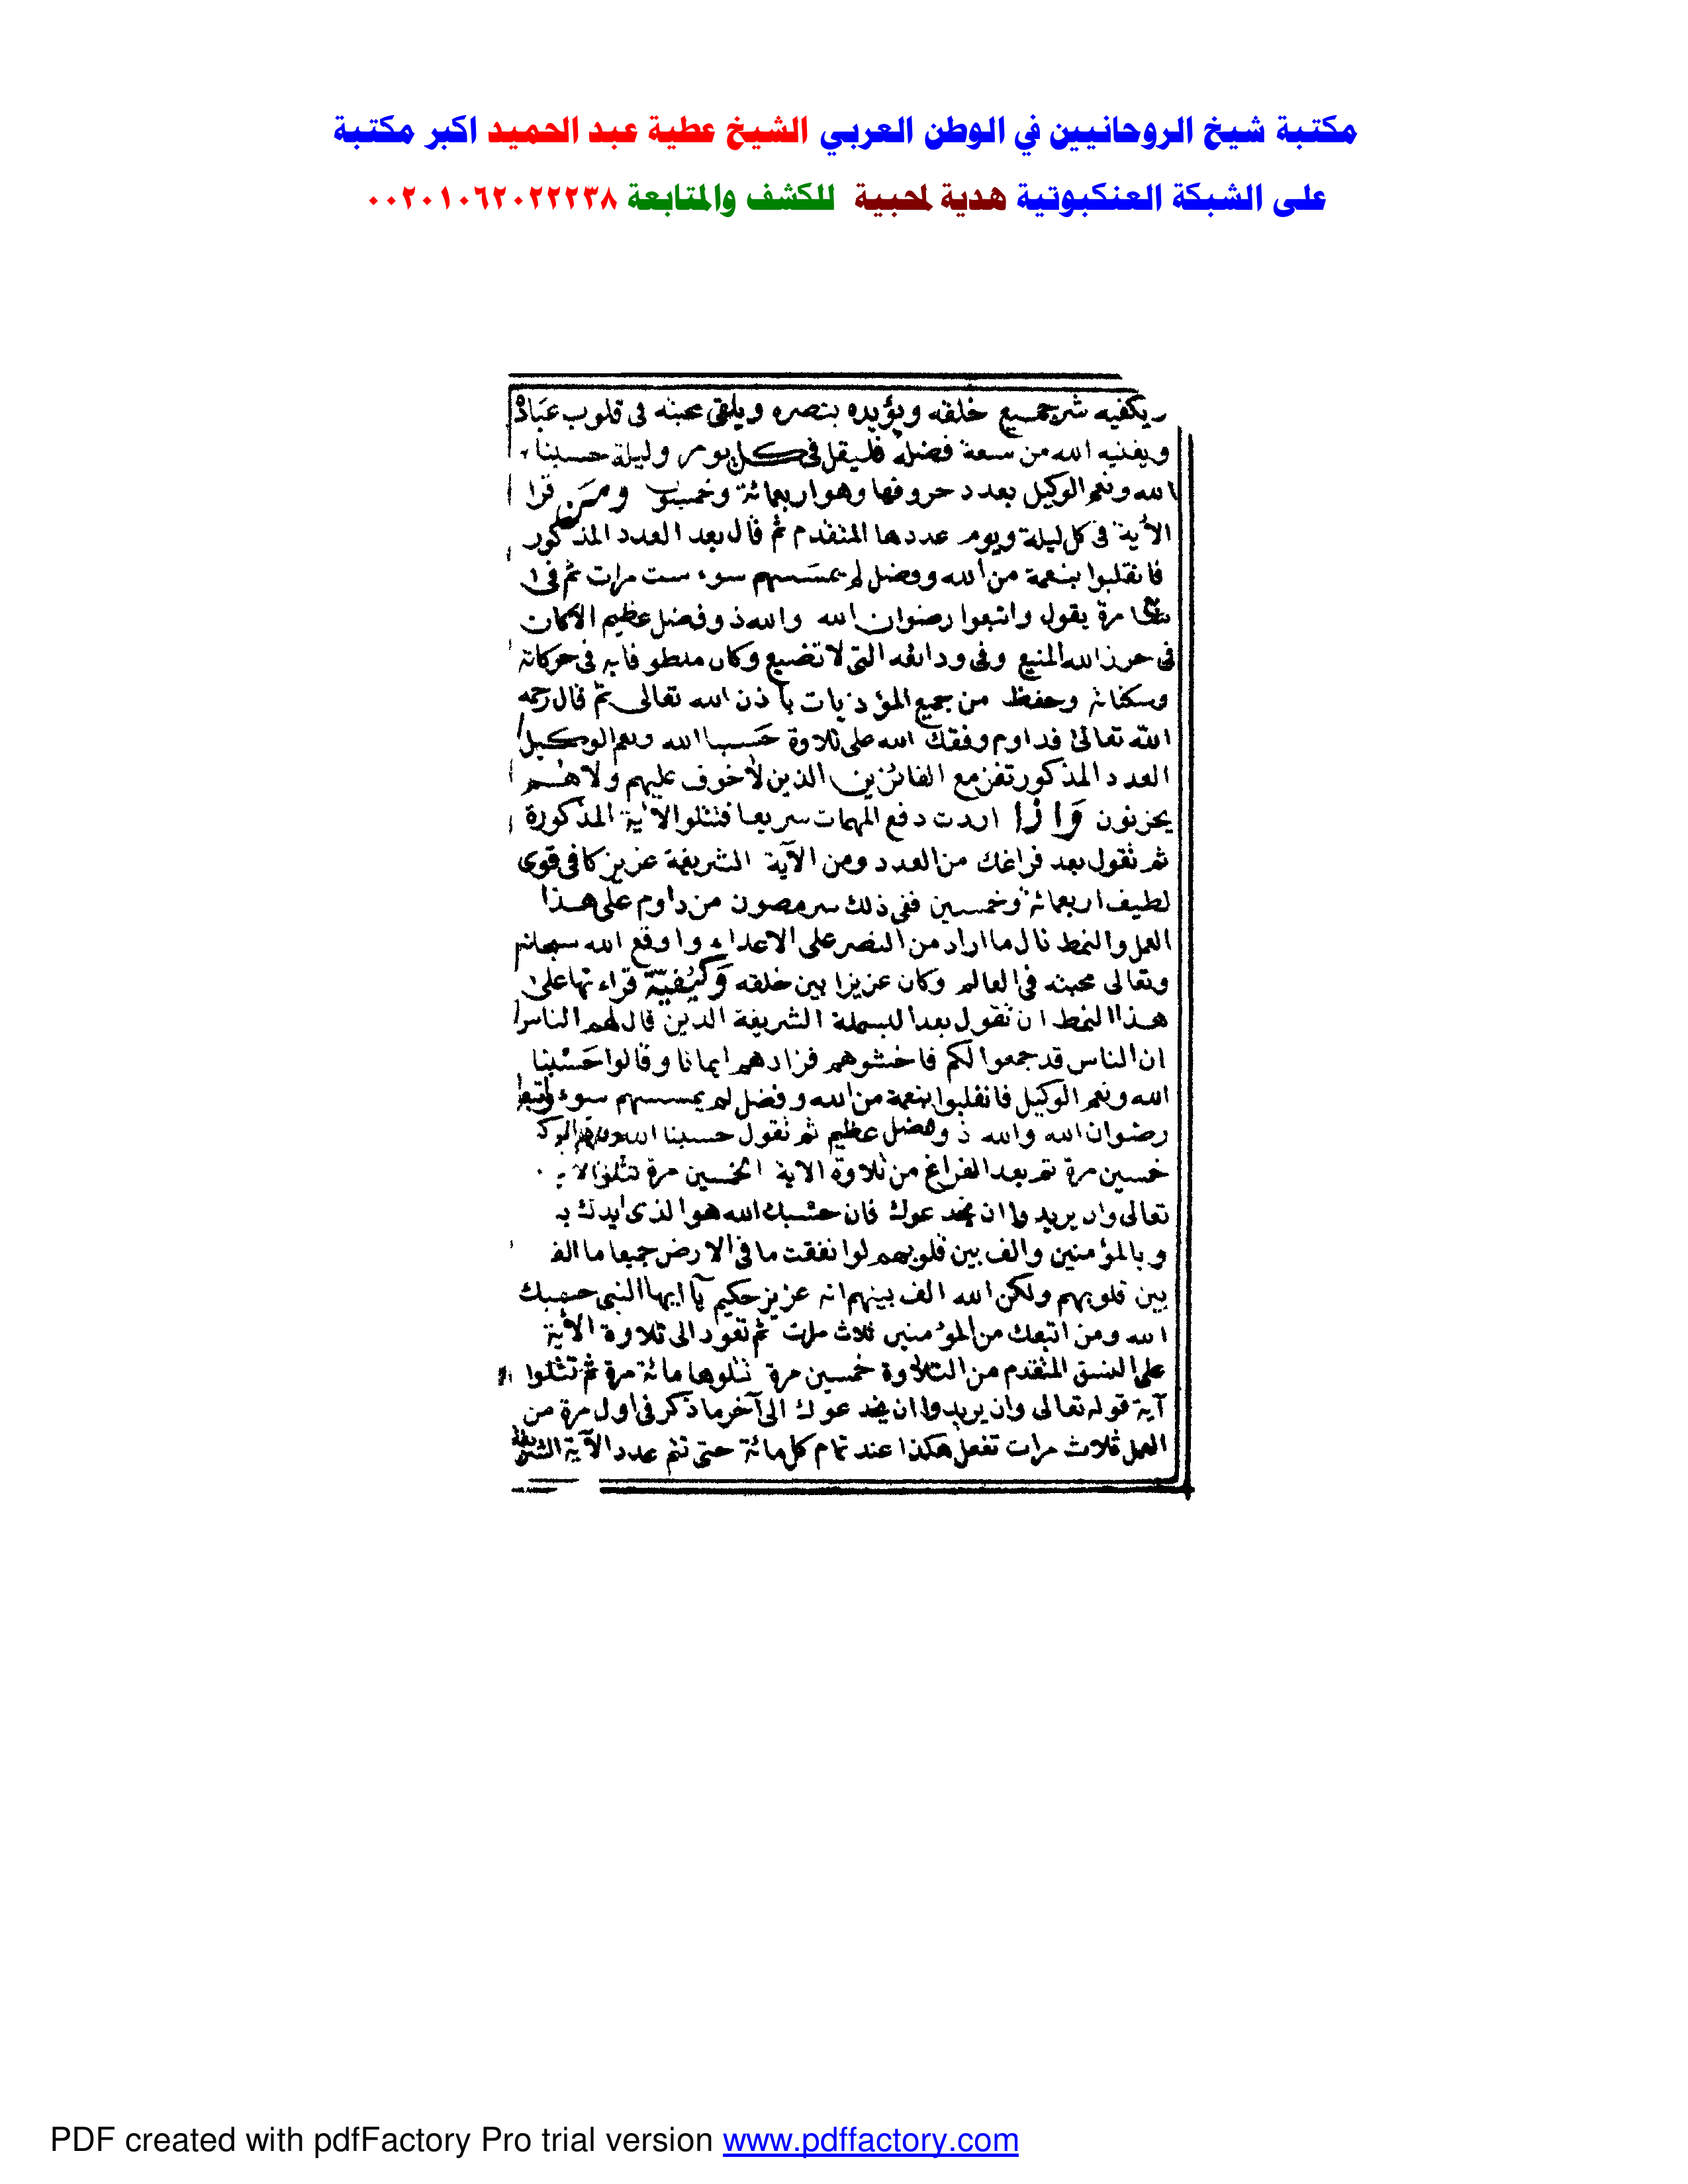 مكتبة شيخ الروحانيين في الوطن العربي الشيخ عطية عبد الحميد اكبر مكتبة
على الشبكة العنكبوتية هدية لمحبية للكشف والمتابعة ٠٠٢٠١٠٦٢٠٢٢٢٣٨
ويكفيه شر جميع خلقه ويؤيده بنصره ويلقى محبته فى قلوب عباده
ويغنيه الله من سعة فضله فليقل فى كل يوم وليلة حسبنا
الله ونعم الوكيل بعدد حروفها وهو اربعمائة وخمسون ومن قرا
الأية فى كل ليلة ويوم عددها المتقدم ثم قال بعد العدد المذكور
فانقلبوا بنعمة من الله وفضل لم يمسسهم سوء ست مرات ثم فى
مرة يقول واتبعوا رضوان الله والله ذو فضل عظيم الاكان
فى حرز الله المنيع وفى ودائعه التى لا تضيع وكان ملطوفا به فى حركاته
وسكناته وحفظ من جميع المؤذيات باذن الله تعالى ثم قال رحمه
الله تعالى فداوم وفقك الله على تلاوة حسبنا الله ونعم الوكيل
العدد المذكور تفز مع الفائزين الذين لا خوف عليهم ولا هم
يحزنون واذا اردت دفع المهمات سريعا فتتلو الأية المذكورة
ثم تقول بعد فراغك من العدد ومن الآية الشريفة عزيز كافى قوى
لطيف اربعمائة وخمسين ففى ذلك سر مصون من داوم على هذا
العمل والنمط نال ما اراد من النصر على الاعداء واوقع الله سبحانه
وتعالى محبته فى العالم وكان عزيزا بين خلقه وكيفية قراءتها على
هذا النمط ان تقول بعد البسملة الشريفة الذين قال لهم الناس
ان الناس قد جمعوا لكم فاخشوهم فزادهم ايمانا وقالوا حسبنا
الله ونعم الوكيل فانقلبوا بنعمة من الله وفضل لم يمسسهم سوء واتبعوا
رضوان الله والله ذو فضل عظيم ثم تقول حسبنا الله ونعم الوكـ
خمسين مرة ثم بعد الفراغ من تلاوة الاية الخمسين مرة تتلو الاية
تعالى وان يريدوا ان يخدعوك فان حسبك الله هو الذى ايدك بـ
وبالمؤمنين والف بين قلوبهم لو انفقت ما فى الارض جميعا ما الف
بين قلوبهم ولكن الله الف بينهم انه عزيز حكيم يا ايها النبى حسبك
الله ومن اتبعك من المؤمنين ثلاث مرات ثم تعود الى تلاوة الأية
على النسق المتقدم من التلاوة خمسين مرة تتلوها مائة مرة ثم تتلوا
آية قوله تعالى وان يريدوا ان يخدعوك الى آخر ما ذكر فى اول مرة من
العمل ثلاث مرات تفعل هكذا عند تمام كل مائة حتى تتم عدد الآية الشريفة
PDF created with pdfFactory Pro trial version www.pdffactory.com